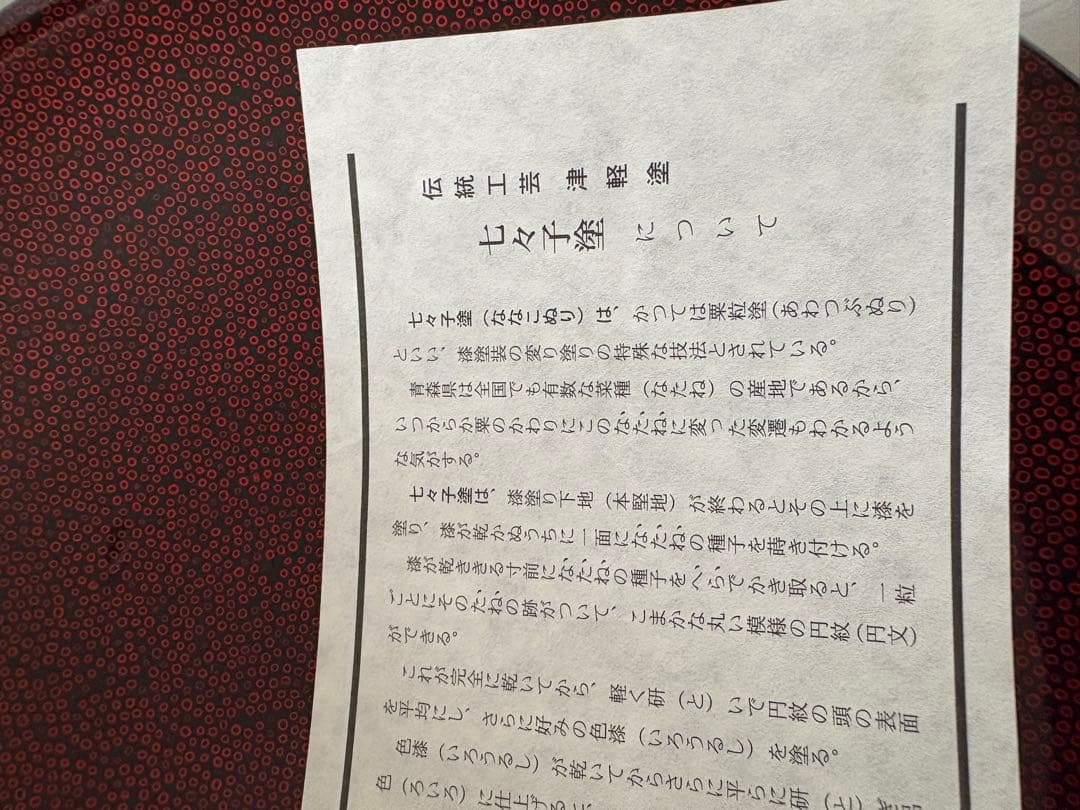 伝統工芸 津軽塗
七々子塗について
七々子塗（ななこぬり）は、かつては粟粒塗（あわつぶぬり）
といい、漆塗装の変り塗りの特殊な技法とされている。
青森県は全国でも有数な菜種（なたね）の産地であるから、
いつからか粟のかわりにこのなたねに変った変遷もわかるよう
な気がする。
七々子塗は、漆塗り下地（本堅地）が終わるとその上に漆を
塗り、漆が乾かぬうちに一面になたねの種子を蒔き付ける。
漆が乾ききる寸前になたねの種子をへらでかき取ると、一粒
ごとにそのたねの跡がついて、こまかな丸い模様の円紋（円文）
ができる。
これが完全に乾いてから、軽く研（と）いで円紋の頭の表面
を平均にし、さらに好みの色漆（いろうるし）を塗る。
色漆（いろうるし）が乾いてからさらに平らに研（と）
色（ろいろ）に仕上げると、